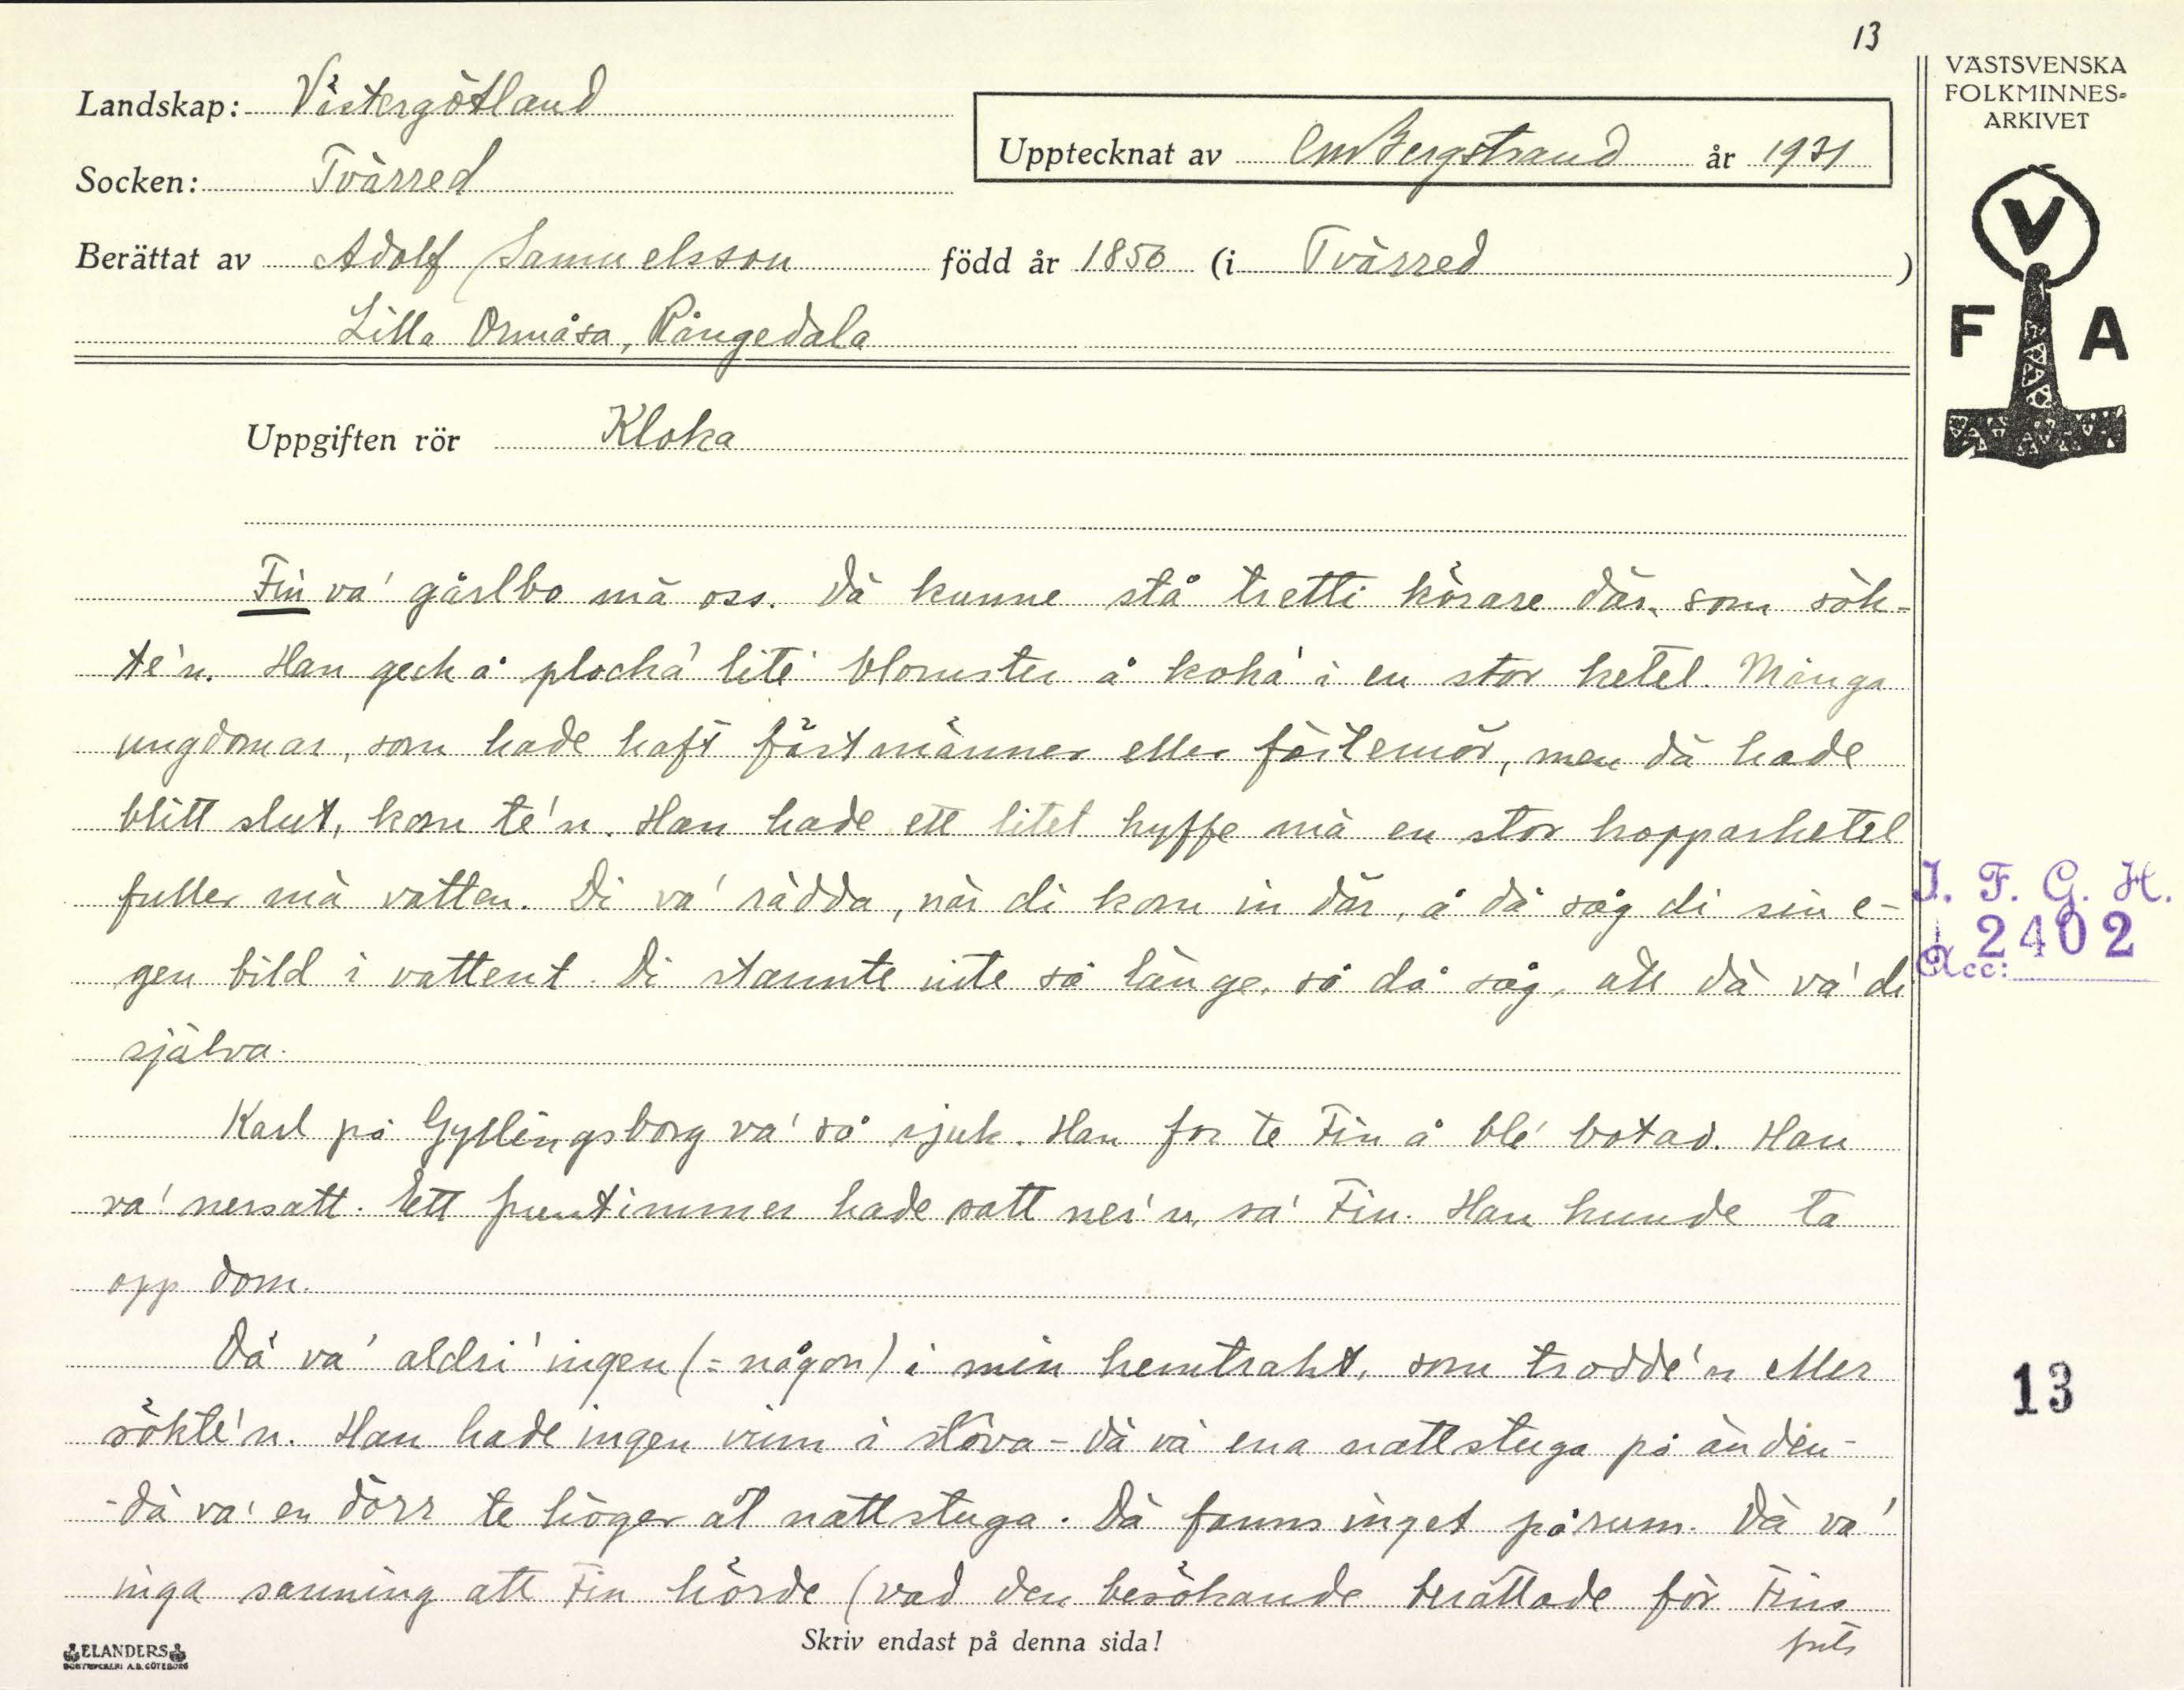 13
VÄSTSVENSKA
FOLKMINNES-
ARKIVET
Landskap: Västergötland
Upptecknat av C.M. Bergstrand år 1931
Socken: Tvärred
Berättat av Adolf Samuelsson född år 1850 (i Tvärred)
Lilla Ormåsa, Rångedala
V
F A
Uppgiften rör Kloka
Fin va' gårlbo mä oss. Dä kunne stå tretti körare där, som sök-
te'n. Han geck å plocka' lite' blomster å koka' i en stor ketel. Många
ungdomar, som hade haft fästmänner eller fästemör, men dä hade
blitt slut, kom te'n. Han hade ett litet kyffe mä en stor kopparketel
fuller mä vatten. Di va' rädda, när di kom in där, å då såg di sin e-
gen bild i vattent. Di stannte inte så länge, så då såg, att dä va' di
själva.
J. F. G. H.
Acc: 2402
Karl på Gyllingsborg va' så sjuk. Han for te Fin å ble' botad. Han
va' nersatt. Ett fruntimmer hade satt ner'n, sa' Fin. Han kunde ta
opp dom.
Dä va' aldri' ingen (= någon) i min hemtrakt, som trodde'n eller
sökte'n. Han hade ingen rum i stöva - dä va ena nattstuga på änden -
- dä va' en dörr te höger åt nattstuga. Dä fanns inget på'rum. Dä va'
inga sanning att Fin hörde (vad den besökande berättade för Fins
13
Skriv endast på denna sida!
ELANDERS
BOKTRYCKERI A.B. GÖTEBORG